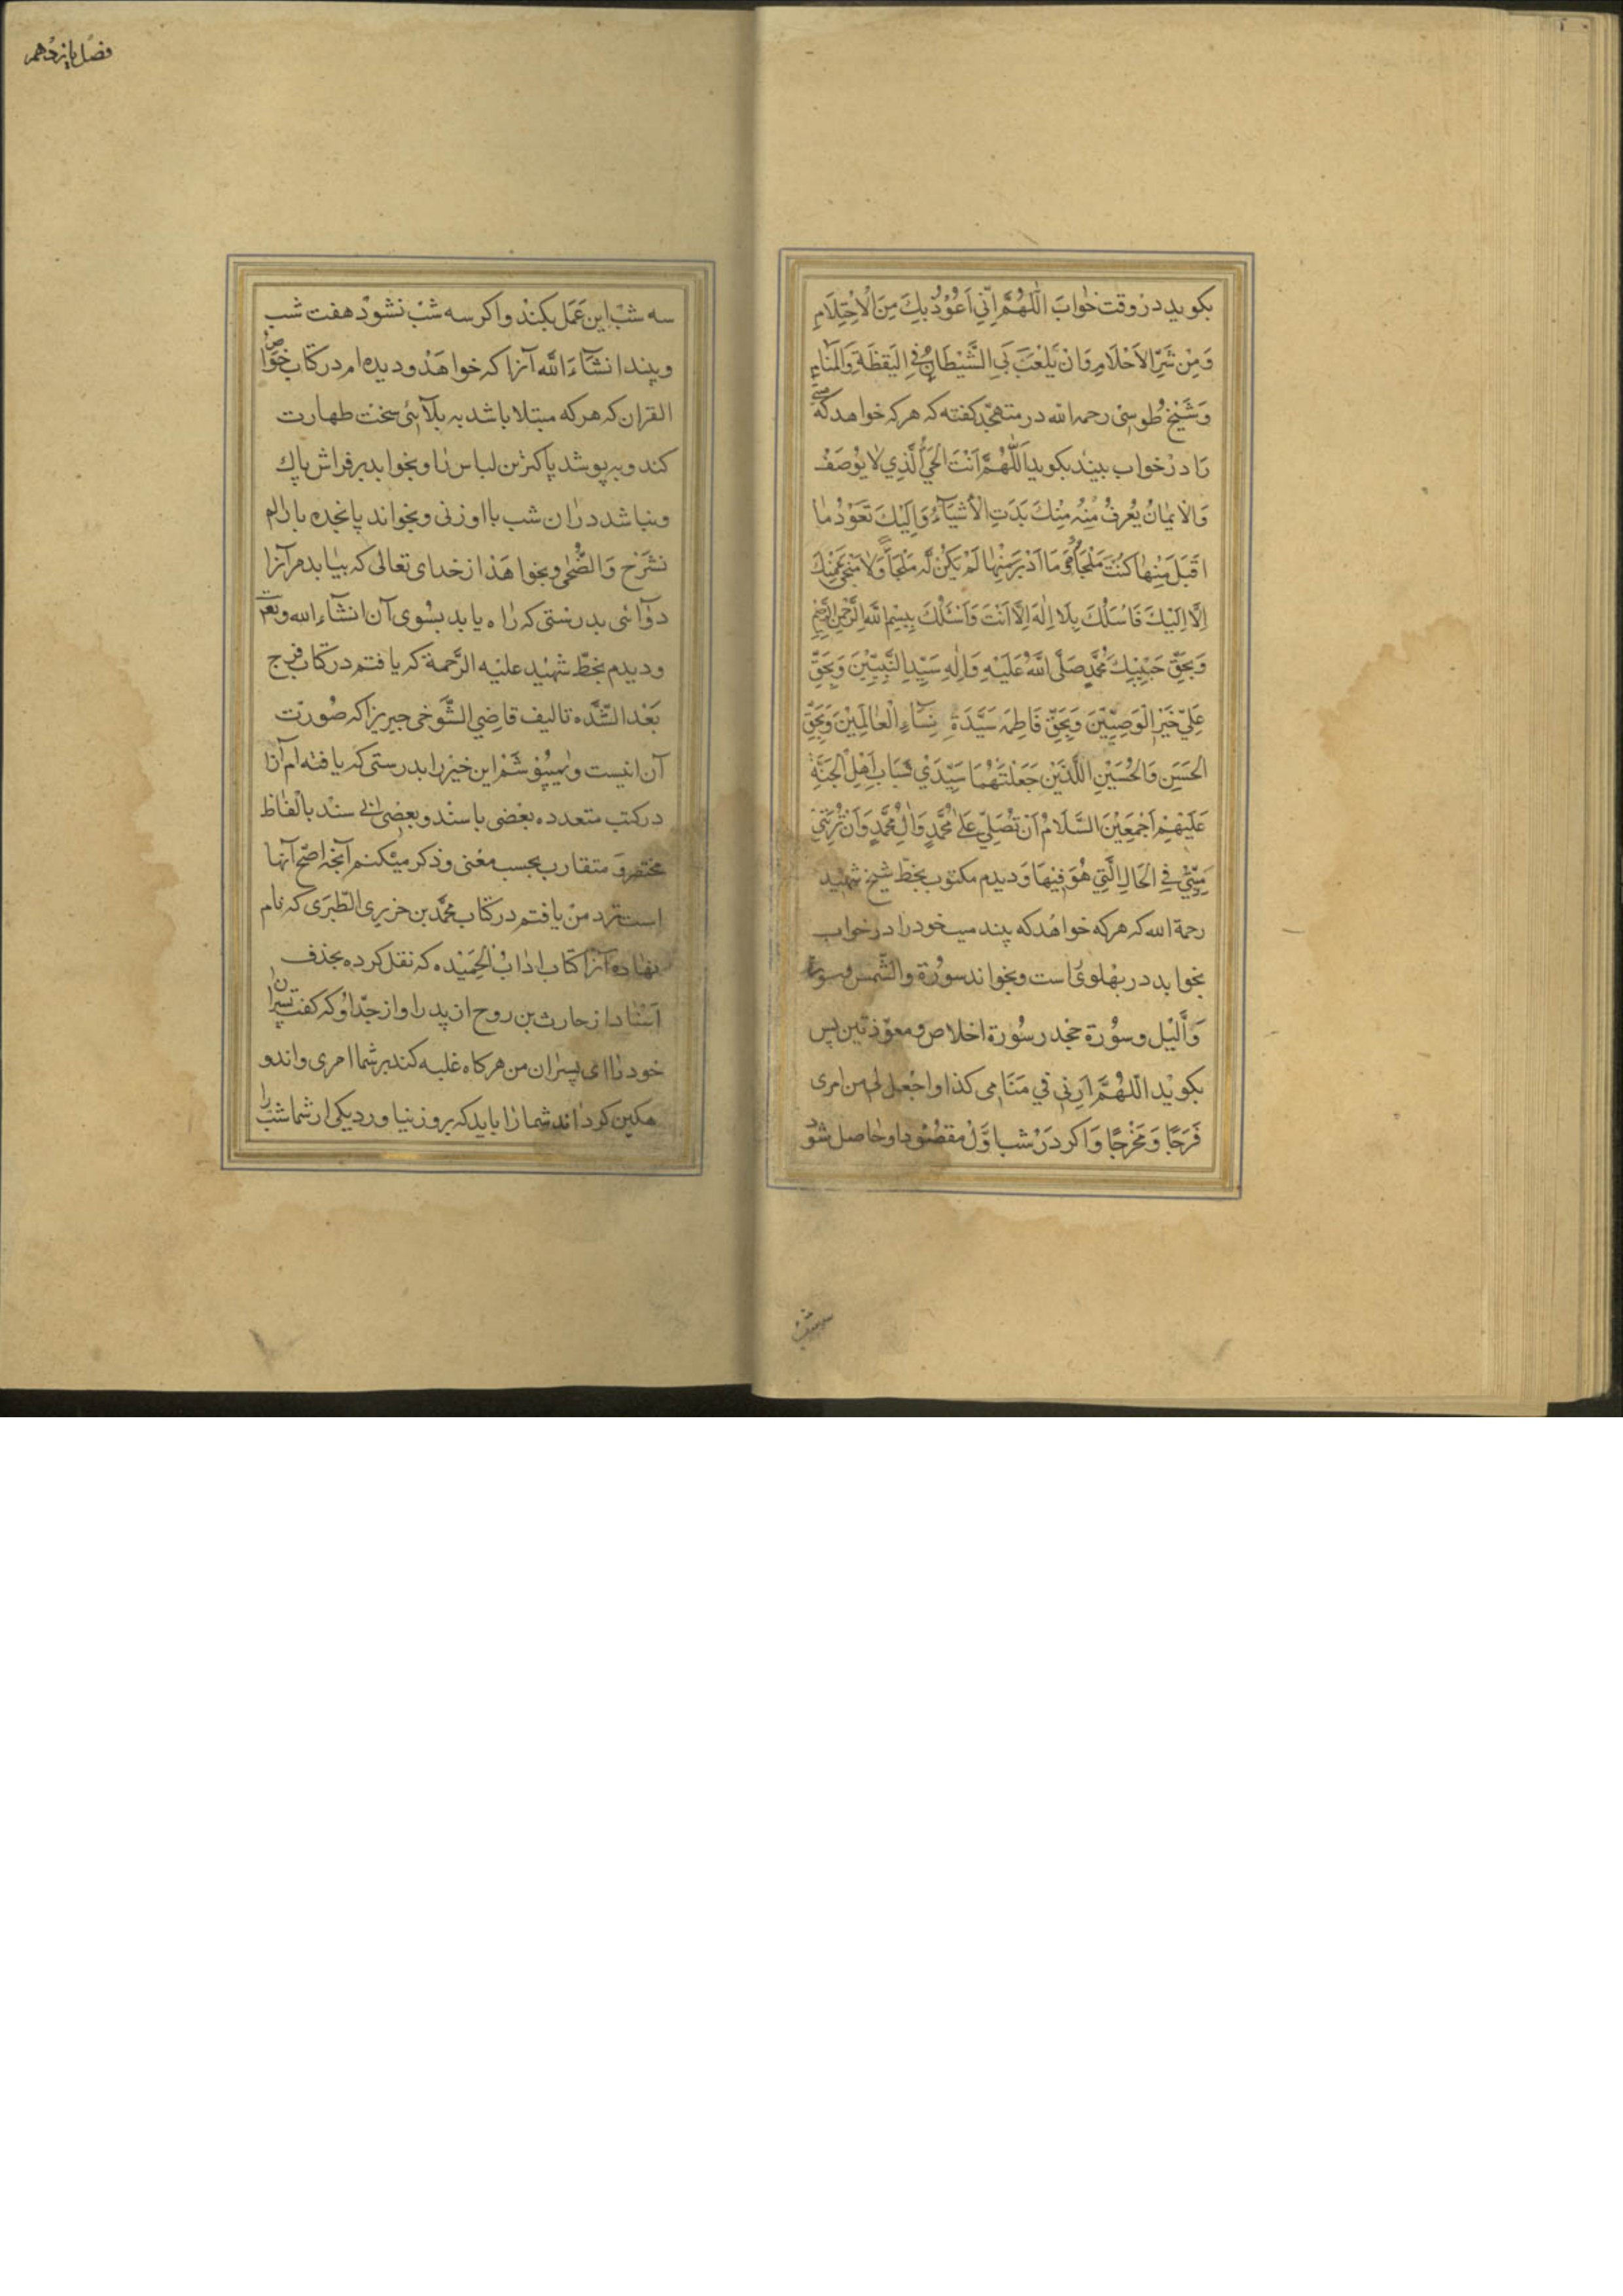 بکوید در وقت خواب اَللّهُمَّ اِنّی اَعُوْذُ بِكَ مِنَ الْاِحْتِلَامِ
وَمِنْ شَرِّ الاَحْلَامِ وَانْ یَلْعَبَ بَیِ الشَّیْطَانُ فِی الیَقظَةِ وَالمَنَامِ
وَشَیْخ طُوسی رحمه الله در متهجّد کفته که هر که خواهد که میّتی
رَا درْ خواب بیند بکوید اَللّٰهُمَّ اَنْتَ الحَیُّ الَّذِي لَا یُوْصَفُ
وَالاْیمَانُ یُعْرفُ مِنْهُ مِنْكَ بَدَتِ الْاَشْیَآءُ وَاِلَیْكَ تَعُوْدُ مٰا
اقَبَلَ مِنْهٰا کُنْتَ مَلْجَأُهُ وَمَا اَدْبَرَ مِنْهٰا لَمْ یَکُنْ لَهُ مَلْجَأٌ وَلَا مَنْجیٰ مِنْكَ
اِلَّا اِلَیْكَ فَاَسْئَلُكَ بِلَا اِلٰهَ اِلَّا اَنْتَ وَاَسْئَلُكَ بِبِسْمِ اللهِ الرَّحْمٰنِ الرَّحِیْمِ
وَبِحَقِّ حَبِیْبِكَ مُحَمَّدٍ صَلَّی اللهُ عَلَیْهِ وَاٰلِهِ سَیِّدِ النَّبِیِّیْنَ وَبِحَقِّ
عَلِيٍّ خَیْرِ الْوَصِیِّیْنَ وَبِحَقِّ فَاطِمَه سَیَّدَةِ نِسَآءِ الْعٰالَمِیْنَ وَبِحَقِّ
الحَسَنِ وَالحُسَیْنِ اللَّذَیْنِ جَعَلْتَهُمَا سَیِّدَیْ شَبَابِ اَهْلِ الْجَنَّةِ
عَلَیْهِمْ اَجْمَعِیْنَ السَّلَامُ اَنْ تُصَلِّیَ عَلٰی مُحَمَّدٍ وَاٰلِ مُحَمَّدٍ وَاَنْ تُرِیَنِی
مَیِّتِیْ فِی الحَالِ الَّتِی هُوَ فِیْهَا وَ دیدم مکتوب بخطّ شیخ شهید
رحمة الله که هر که خواهد که بیند میت خود را در خواب
بخوابد در پهلوی راست و بخواند سورة والشّمس و سورة
وَاللّیْل و سوُرة جحد و سوُرة اخلاص و معوّذتین پس
بکویْد اللّٰهُمَّ اَرِنِی فِي مَنَامِی کذا وَاجْعل لی من امری
فَرَجًا وَمَخْرجًا وَاکر درْ شب اوَّل مقصُود او حاصل شود
سه شب
فصل یازدهم
سه شبْ این عَمَل بکنْد و اکر سه شبْ نشودْ هفت شب
و بیند انشآءَ الله آنرا که خواهَدْ و دیده ام در کتاب خوَاصّ
القران که هر که مبتلا باشد به بلآئی سخت طهارت
کند و به پوشد پاکترین لباس را و بخوابد بر فراش پاك
و نباشد در ان شب با او زنی و بخواند پانجده بار الم
نشرح وَالضُّحٰی و بخواهَدْ از خدای تعالی که بیٰابد مر آنرا
دوٓائی بدرستی که راه یابد بسُوی آن انشآء الله و تعٰ
و دیدم بخطّ شهید علیْه الرَّحمة که یافتم در کتاب فرج
بَعْد الشِّدّه تالیف قاضِی التَّنوخی چیزیرا که صُورت
آن اینست این خبر را بدرستی که یافته ام آنرا
در کتب متعدده بَعْضی با سند و بعْضی بی سند بالفاظ
مختصر و متقارب بحسب معْنی و ذکر میکنم آنچه اصَحّ آنها
است نزد من یافتم در کتاب محمَّد بن جریرِی الطّبَری که نام
نهاده آنرا کتاب ادابُ الحَمِیْده که نقل کرده بحذف
اَسْنٰاد از حارث بن روح از پدر او از جدّ اوُ که کفت پسرٰان
خود رٰا ای پسرٰان من هرکاه غلبه کند بر شما امری و اندو
هکین کرداند شما رٰا باید که بروز نیاورد یکی از شما شب را